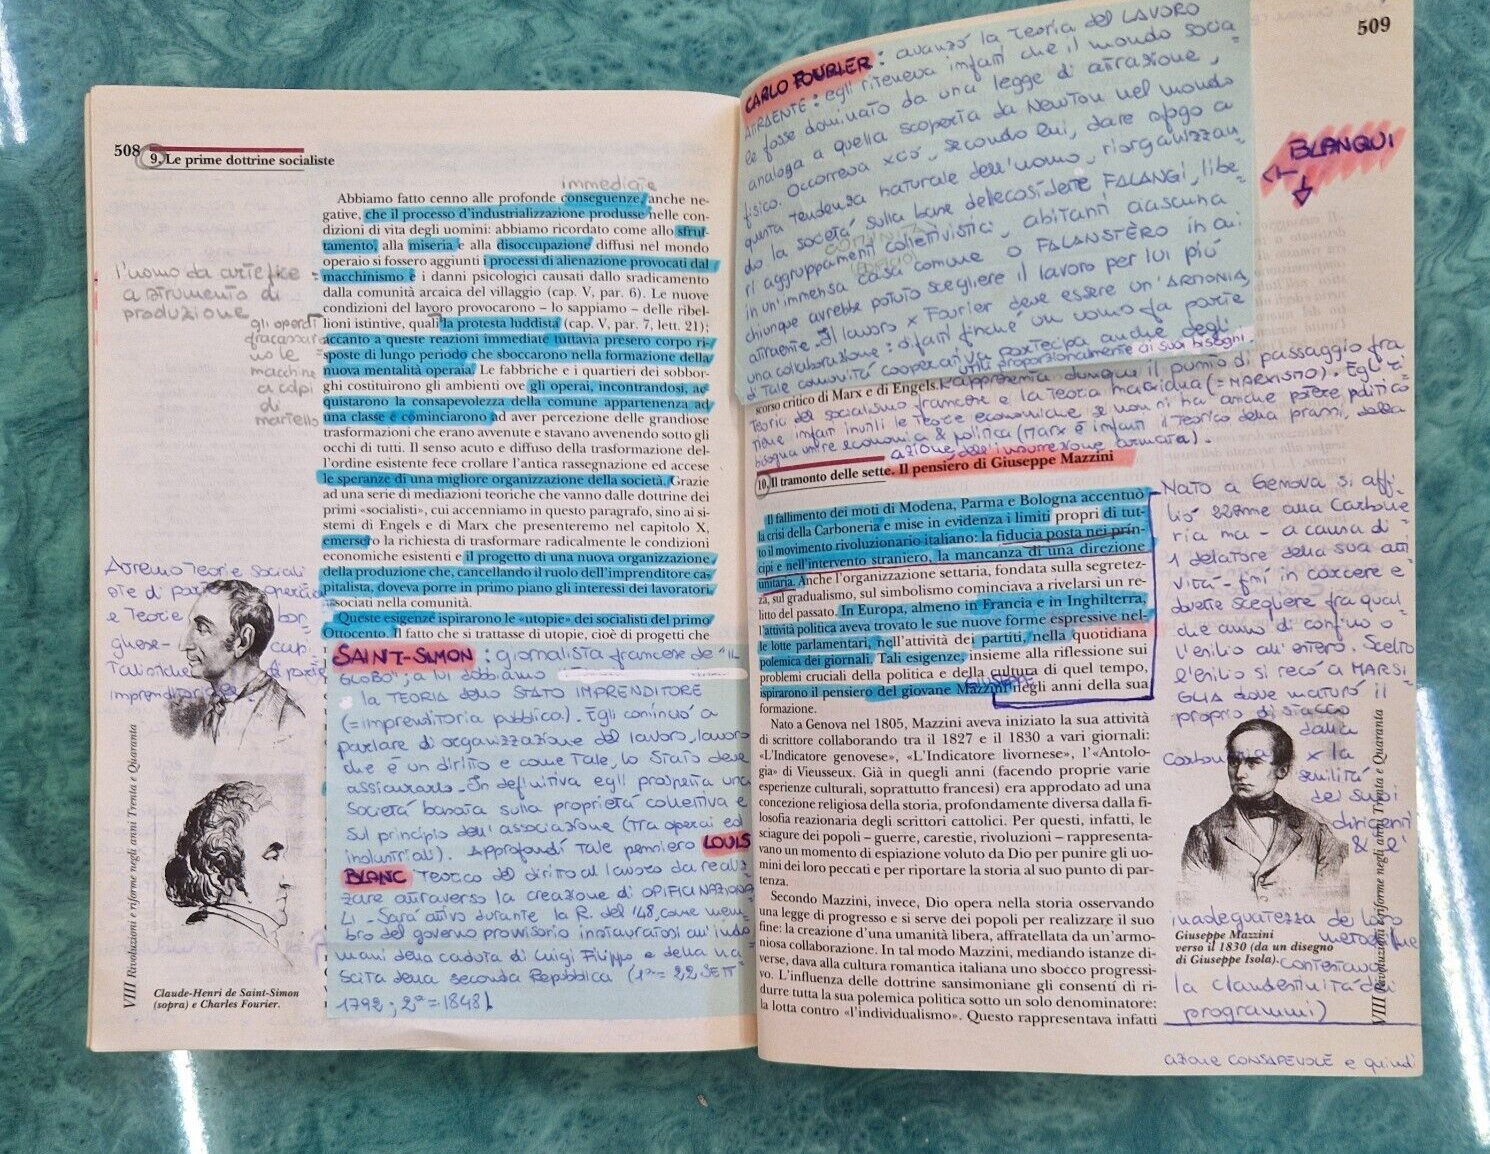 508
9. Le prime dottrine socialiste
immediate
Abbiamo fatto cenno alle profonde conseguenze, anche ne-
gative, che il processo d'industrializzazione produsse nelle con-
dizioni di vita degli uomini: abbiamo ricordato come allo sfrut-
tamento, alla miseria e alla disoccupazione diffusi nel mondo
operaio si fossero aggiunti i processi di alienazione provocati dal
macchinismo e i danni psicologici causati dallo sradicamento
dalla comunità arcaica del villaggio (cap. V, par. 6). Le nuove
condizioni del lavoro provocarono – lo sappiamo – delle ribel-
lioni istintive, quali la protesta luddista (cap. V, par. 7, lett. 21);
accanto a queste reazioni immediate tuttavia presero corpo ri-
sposte di lungo periodo che sboccarono nella formazione della
nuova mentalità operaia. Le fabbriche e i quartieri dei sobbor-
ghi costituirono gli ambienti ove gli operai, incontrandosi, ac-
quistarono la consapevolezza della comune appartenenza ad
una classe e cominciarono ad aver percezione delle grandiose
trasformazioni che erano avvenute e stavano avvenendo sotto gli
occhi di tutti. Il senso acuto e diffuso della trasformazione del-
l'ordine esistente fece crollare l'antica rassegnazione ed accese
le speranze di una migliore organizzazione della società. Grazie
ad una serie di mediazioni teoriche che vanno dalle dottrine dei
primi «socialisti», cui accenniamo in questo paragrafo, sino ai si-
stemi di Engels e di Marx che presenteremo nel capitolo X,
emerse la richiesta di trasformare radicalmente le condizioni
economiche esistenti e il progetto di una nuova organizzazione
della produzione che, cancellando il ruolo dell'imprenditore ca-
pitalista, doveva porre in primo piano gli interessi dei lavoratori
associati nella comunità.
Queste esigenze ispirarono le «utopie» dei socialisti del primo
Ottocento. Il fatto che si trattasse di utopie, cioè di progetti che
l'uomo da artefice =
a strumento di
produzione
gli operai
fracassaro
no le =
macchine
a colpi
di
martello
Avremo teorie sociali
ste di
e teorie bor
ghese- cap
talistiche di parte
imprenditoriale
SAINT-SIMON: giornalista francese de "IL
GLOBO"; a lui dobbiamo
la TEORIA dello STATO IMPRENDITORE
(= imprenditoria pubblica). Egli cominciò a
parlare di organizzazione del lavoro, lavoro
che è un diritto e come tale, lo Stato deve
assicurarlo. In definitiva egli prospetta una
Società basata sulla proprietà collettiva e
sul principio dell'associazione (tra operai ed
industriali). Approfondì tale pensiero LOUIS
BLANC teorico del diritto al lavoro da realiz
zare attraverso la creazione di OPIFICI NAZIONA
LI. Sarà attivo durante la R. del '48, come mem
bro del governo provvisorio instauratosi all'indo
mani della caduta di Luigi Filippo e della na
scita della seconda Repubblica (1ª= 22 SETT
1792; 2ª=1848).
VIII Rivoluzioni e riforme negli anni Trenta e Quaranta
Claude-Henri de Saint-Simon
(sopra) e Charles Fourier.
509
CARLO FOURIER: avanzò la teoria del LAVORO
ATTRAENTE: egli riteneva infatti che il mondo socia
le fosse dominato da una legge di attrazione,
analoga a quella scoperta da Newton nel mondo
fisico. Occorreva xciò, secondo lui, dare sfogo a
questa tendenza naturale dell'uomo, riorganizzan
do la società sulla base delle cosidette FALANGI, libe
ri aggruppamenti collettivistici, abitanti ciascuna
in un'immensa casa comune o FALANSTÈRO in cui
chiunque avrebbe potuto scegliere il lavoro per lui più
attraente. Il lavoro x Fourier deve essere un'ARMONIA,
una collaborazione: difatti finché un uomo fa parte
di tale comunità cooperativa partecipa anche degli
utili proporzionalmente ai suoi bisogni.
← BLANQUI
↓
scorso critico di Marx e di Engels. Rappresenta dunque il punto di passaggio fra
teorie del socialismo francese e la teoria marxidua (= MARXISMO). Egli ri
tiene infatti inutili le teorie economiche se non si ha anche potere politico
bisogna unire economia & politica (Marx è infatti il teorico della prassi, della
azione, dell'insurrezione armata).
10. Il tramonto delle sette. Il pensiero di Giuseppe Mazzini
Il fallimento dei moti di Modena, Parma e Bologna accentuò
la crisi della Carboneria e mise in evidenza i limiti propri di tut-
to il movimento rivoluzionario italiano: la fiducia posta nei prin-
cipi e nell'intervento straniero, la mancanza di una direzione
unitaria. Anche l'organizzazione settaria, fondata sulla segretez-
za, sul gradualismo, sul simbolismo cominciava a rivelarsi un re-
litto del passato. In Europa, almeno in Francia e in Inghilterra,
l'attività politica aveva trovato le sue nuove forme espressive nel-
le lotte parlamentari, nell'attività dei partiti, nella quotidiana
polemica dei giornali. Tali esigenze, insieme alla riflessione sui
problemi cruciali della politica e della cultura di quel tempo,
GIUSEPPE
ispirarono il pensiero del giovane Mazzini negli anni della sua
formazione.
Nato a Genova nel 1805, Mazzini aveva iniziato la sua attività
di scrittore collaborando tra il 1827 e il 1830 a vari giornali:
«L'Indicatore genovese», «L'Indicatore livornese», l'«Antolo-
gia» di Vieusseux. Già in quegli anni (facendo proprie varie
esperienze culturali, soprattutto francesi) era approdato ad una
concezione religiosa della storia, profondamente diversa dalla fi-
losofia reazionaria degli scrittori cattolici. Per questi, infatti, le
sciagure dei popoli – guerre, carestie, rivoluzioni – rappresenta-
vano un momento di espiazione voluto da Dio per punire gli uo-
mini dei loro peccati e per riportare la storia al suo punto di par-
tenza.
Secondo Mazzini, invece, Dio opera nella storia osservando
una legge di progresso e si serve dei popoli per realizzare il suo
fine: la creazione d'una umanità libera, affratellata da un'armo-
niosa collaborazione. In tal modo Mazzini, mediando istanze di-
verse, dava alla cultura romantica italiana uno sbocco progressi-
vo. L'influenza delle dottrine sansimoniane gli consentì di ri-
durre tutta la sua polemica politica sotto un solo denominatore:
la lotta contro «l'individualismo». Questo rappresentava infatti
Nato a Genova si affi
liò alla Carbone
ria ma - a causa di
1 delatore della sua atti
vità - finì in carcere e
dovette scegliere fra qual
che anno di confino o
l'esilio all'estero. Scelto
l'esilio si recò a MARSI
GLIA dove maturò il
proprio distacco
dalla
Carboneria x la
senilità
dei suoi
dirigenti
& l'
inadeguatezza dei loro
metodi (ne
contestava
la clandestinità dei
programmi)
azione CONSAPEVOLE e quindi
Giuseppe Mazzini
verso il 1830 (da un disegno
di Giuseppe Isola).
VIII Rivoluzioni e riforme negli anni Trenta e Quaranta